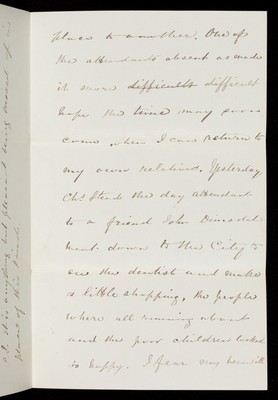 place to another. One of
the attendants absent as made
it more difficult difficult
hope the time may soon
come when I can return to
my own relations. Yesterday
Chs Stead the day attendant
to a friend John Dinsdale
went down to the City to
see the dentist and make
a little shopping, the people
where all running about
and the poor children looked
so happy. I fear my
it is anything but pleasant being moved up in
place of this kind.